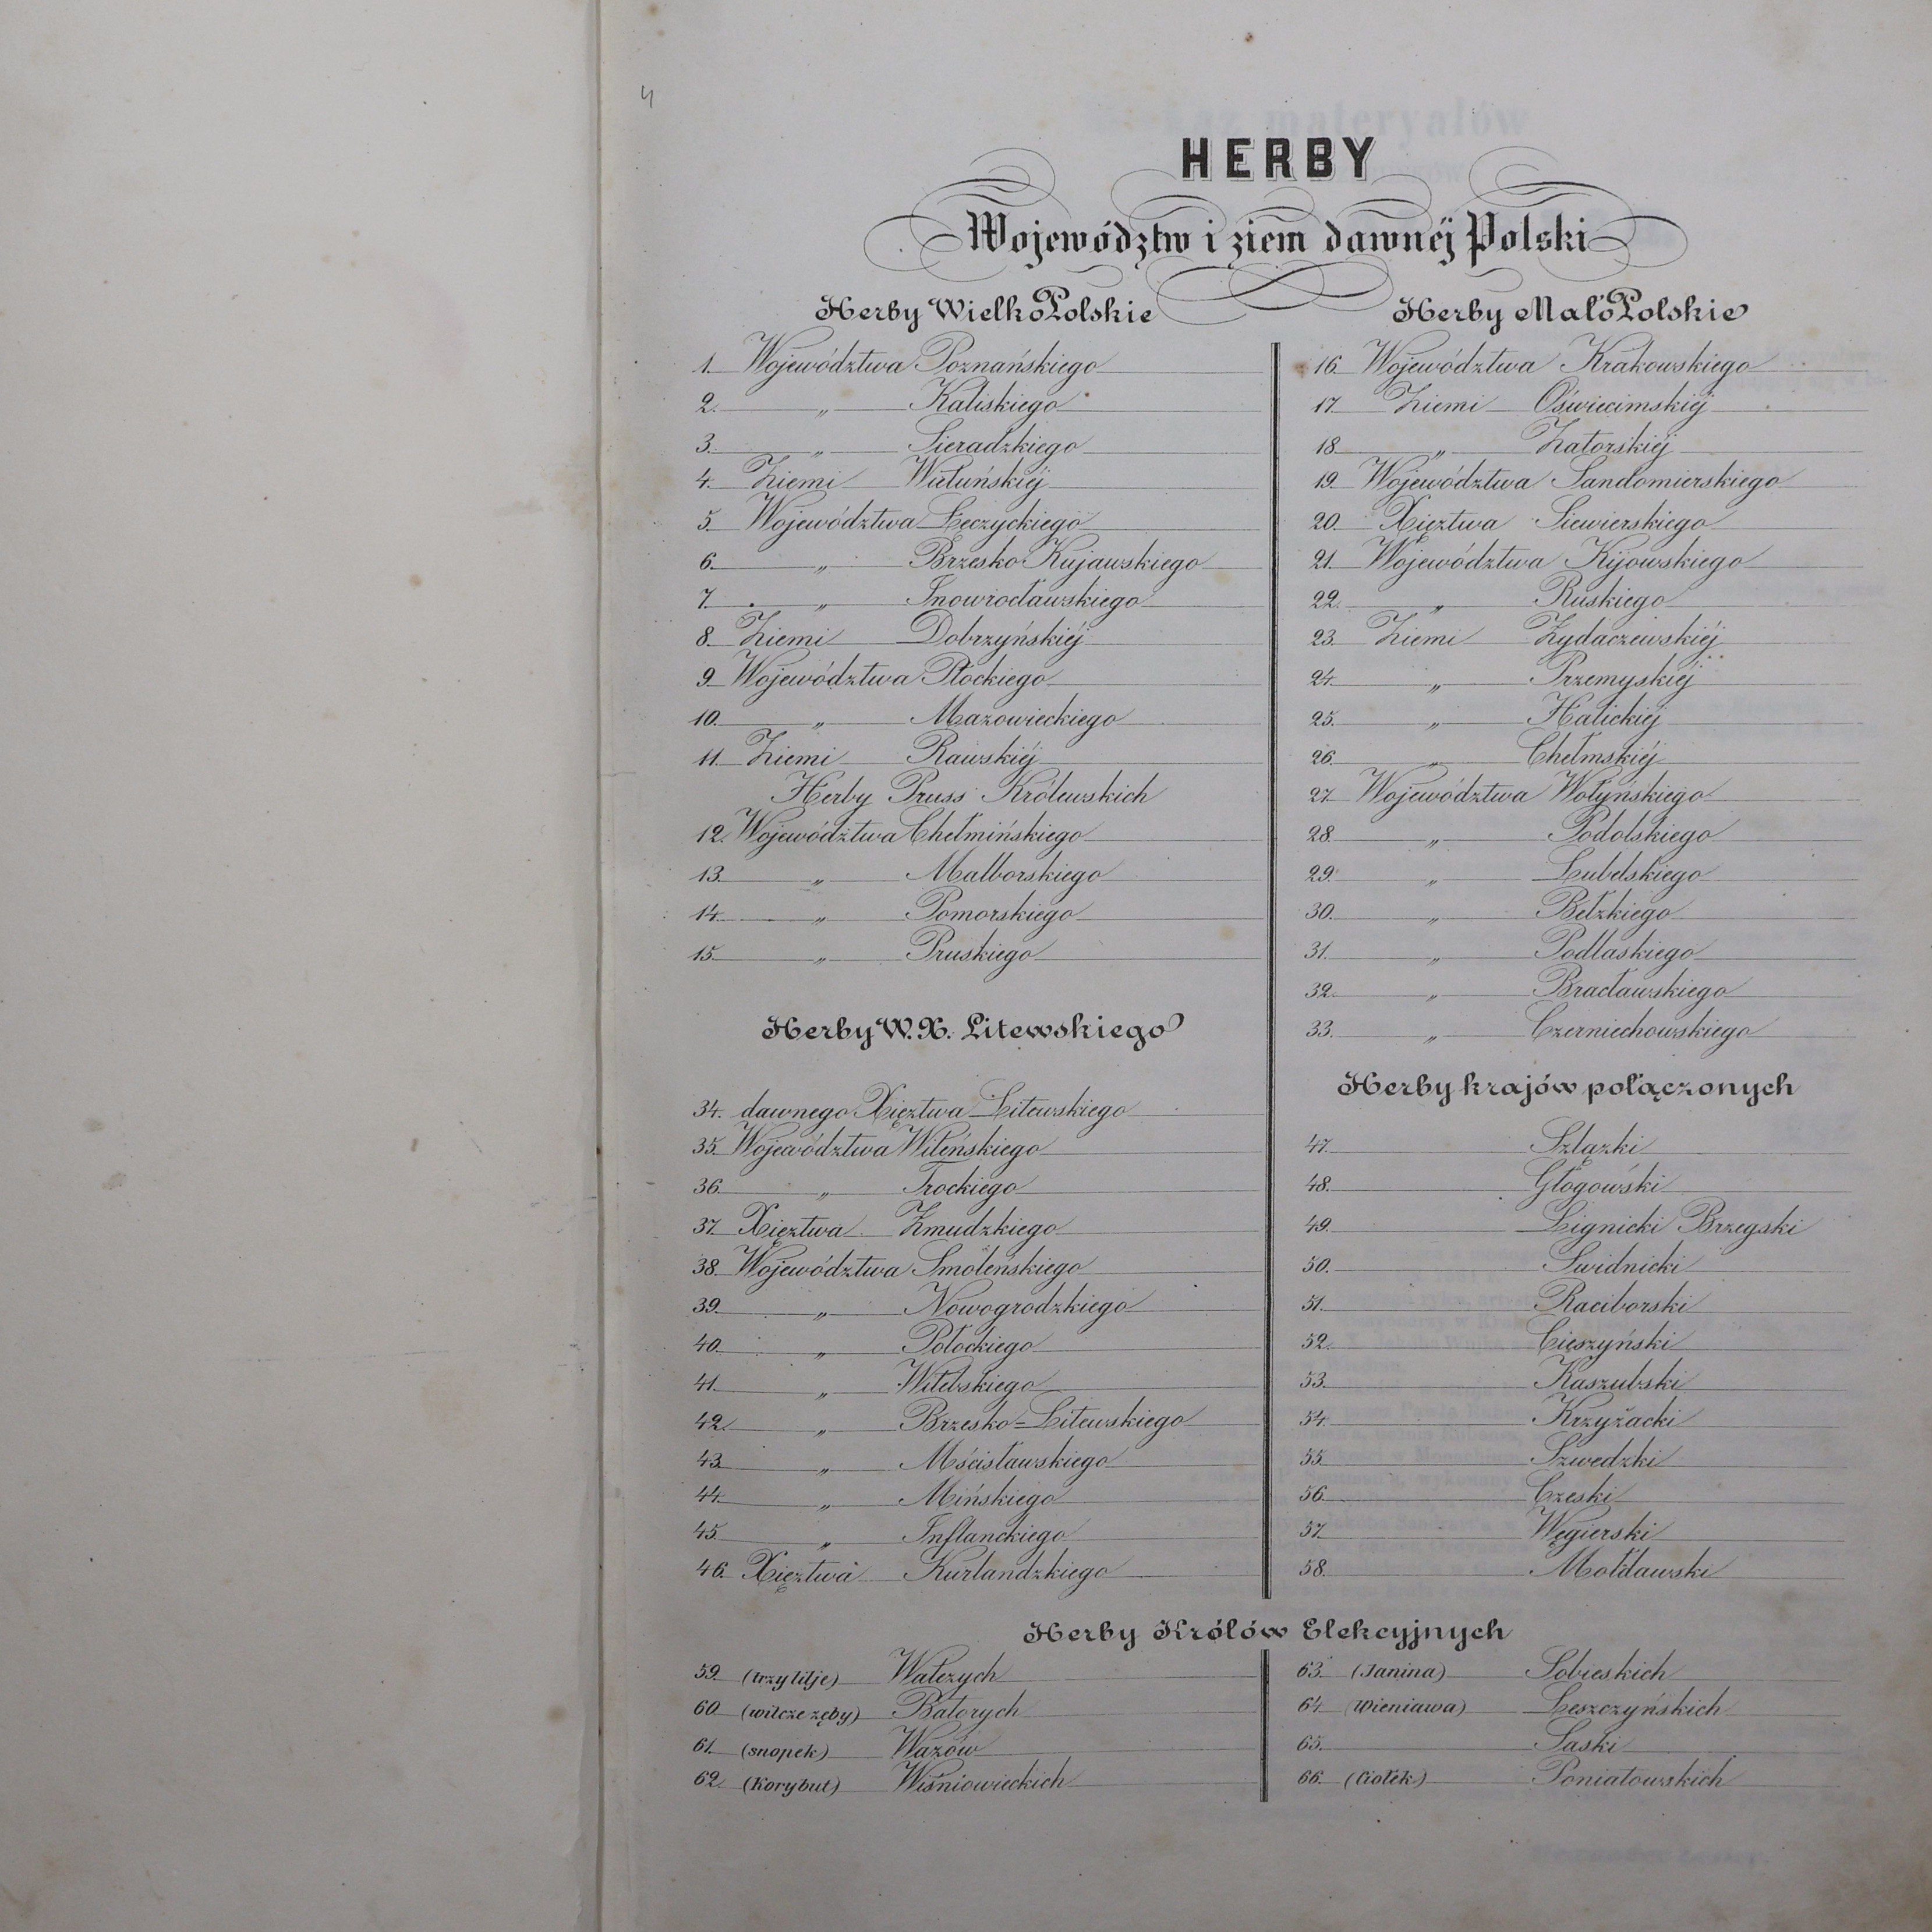 4
HERBY
Województw i ziem dawnéj Polski
Herby WielkoPolskie
1. Województwa Poznańskiego
2. „ Kaliskiego
3. „ Sieradzkiego
4. Ziemi Wieluńskiéj
5. Województwa Łęczyckiego
6. „ Brzesko Kujawskiego
7. „ Inowrocławskiego
8. Ziemi Dobrzyńskiéj
9. Województwa Płockiego
10. „ Mazowieckiego
11. Ziemi Rawskiéj
Herby Pruss Królewskich
12. Województwa Chełmińskiego
13. „ Malborskiego
14. „ Pomorskiego
15. „ Pruskiego
Herby W. X. Litewskiego
34. dawnego Xięztwa Litewskiego
35. Województwa Wileńskiego
36. „ Trockiego
37. Xięztwa Żmudzkiego
38. Województwa Smoleńskiego
39. „ Nowogrodzkiego
40. „ Połockiego
41. „ Witebskiego
42. „ Brzesko-Litewskiego
43. „ Mścisławskiego
44. „ Mińskiego
45. „ Inflanckiego
46. Xięztwa Kurlandzkiego
Herby MałoPolskie
16. Województwa Krakowskiego
17. Ziemi Oświecimskiéj
18. „ Zatorskiéj
19. Województwa Sandomierskiego
20. Xięztwa Siewierskiego
21. Województwa Kijowskiego
22. „ Ruskiego
23. Ziemi Zydaczewskiéj
24. „ Przemyskiéj
25. „ Halickiéj
26. „ Chełmskiéj
27. Województwa Wołyńskiego
28. „ Podolskiego
29. „ Lubelskiego
30. „ Bełzkiego
31. „ Podlaskiego
32. „ Bracławskiego
33. „ Czerniechowskiego
Herby krajów połączonych
47. Szlązki
48. Głogowski
49. Lignicki Brzegski
50. Swidnicki
51. Raciborski
52. Cieszyński
53. Kaszubski
54. Krzyżacki
55. Szwedzki
56. Czeski
57. Węgierski
58. Mołdawski
Herby Królów Elekcyjnych
59. (trzy lilje) Walezych
60. (wilcze zęby) Batorych
61. (snopek) Wazów
62. (Korybut) Wiśniowieckich
63. (Janina) Sobieskich
64. (Wieniawa) Leszczyńskich
65. Saski
66. (Ciołek) Poniatowskich